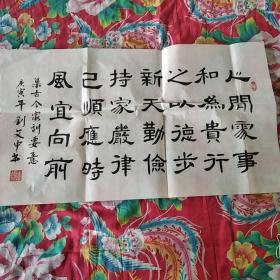 人間處事
和為貴行
之以德步
新天勤儉
持家嚴律
己順應時
風宜向前
集古今家訓要意
庚寅年劉文中書